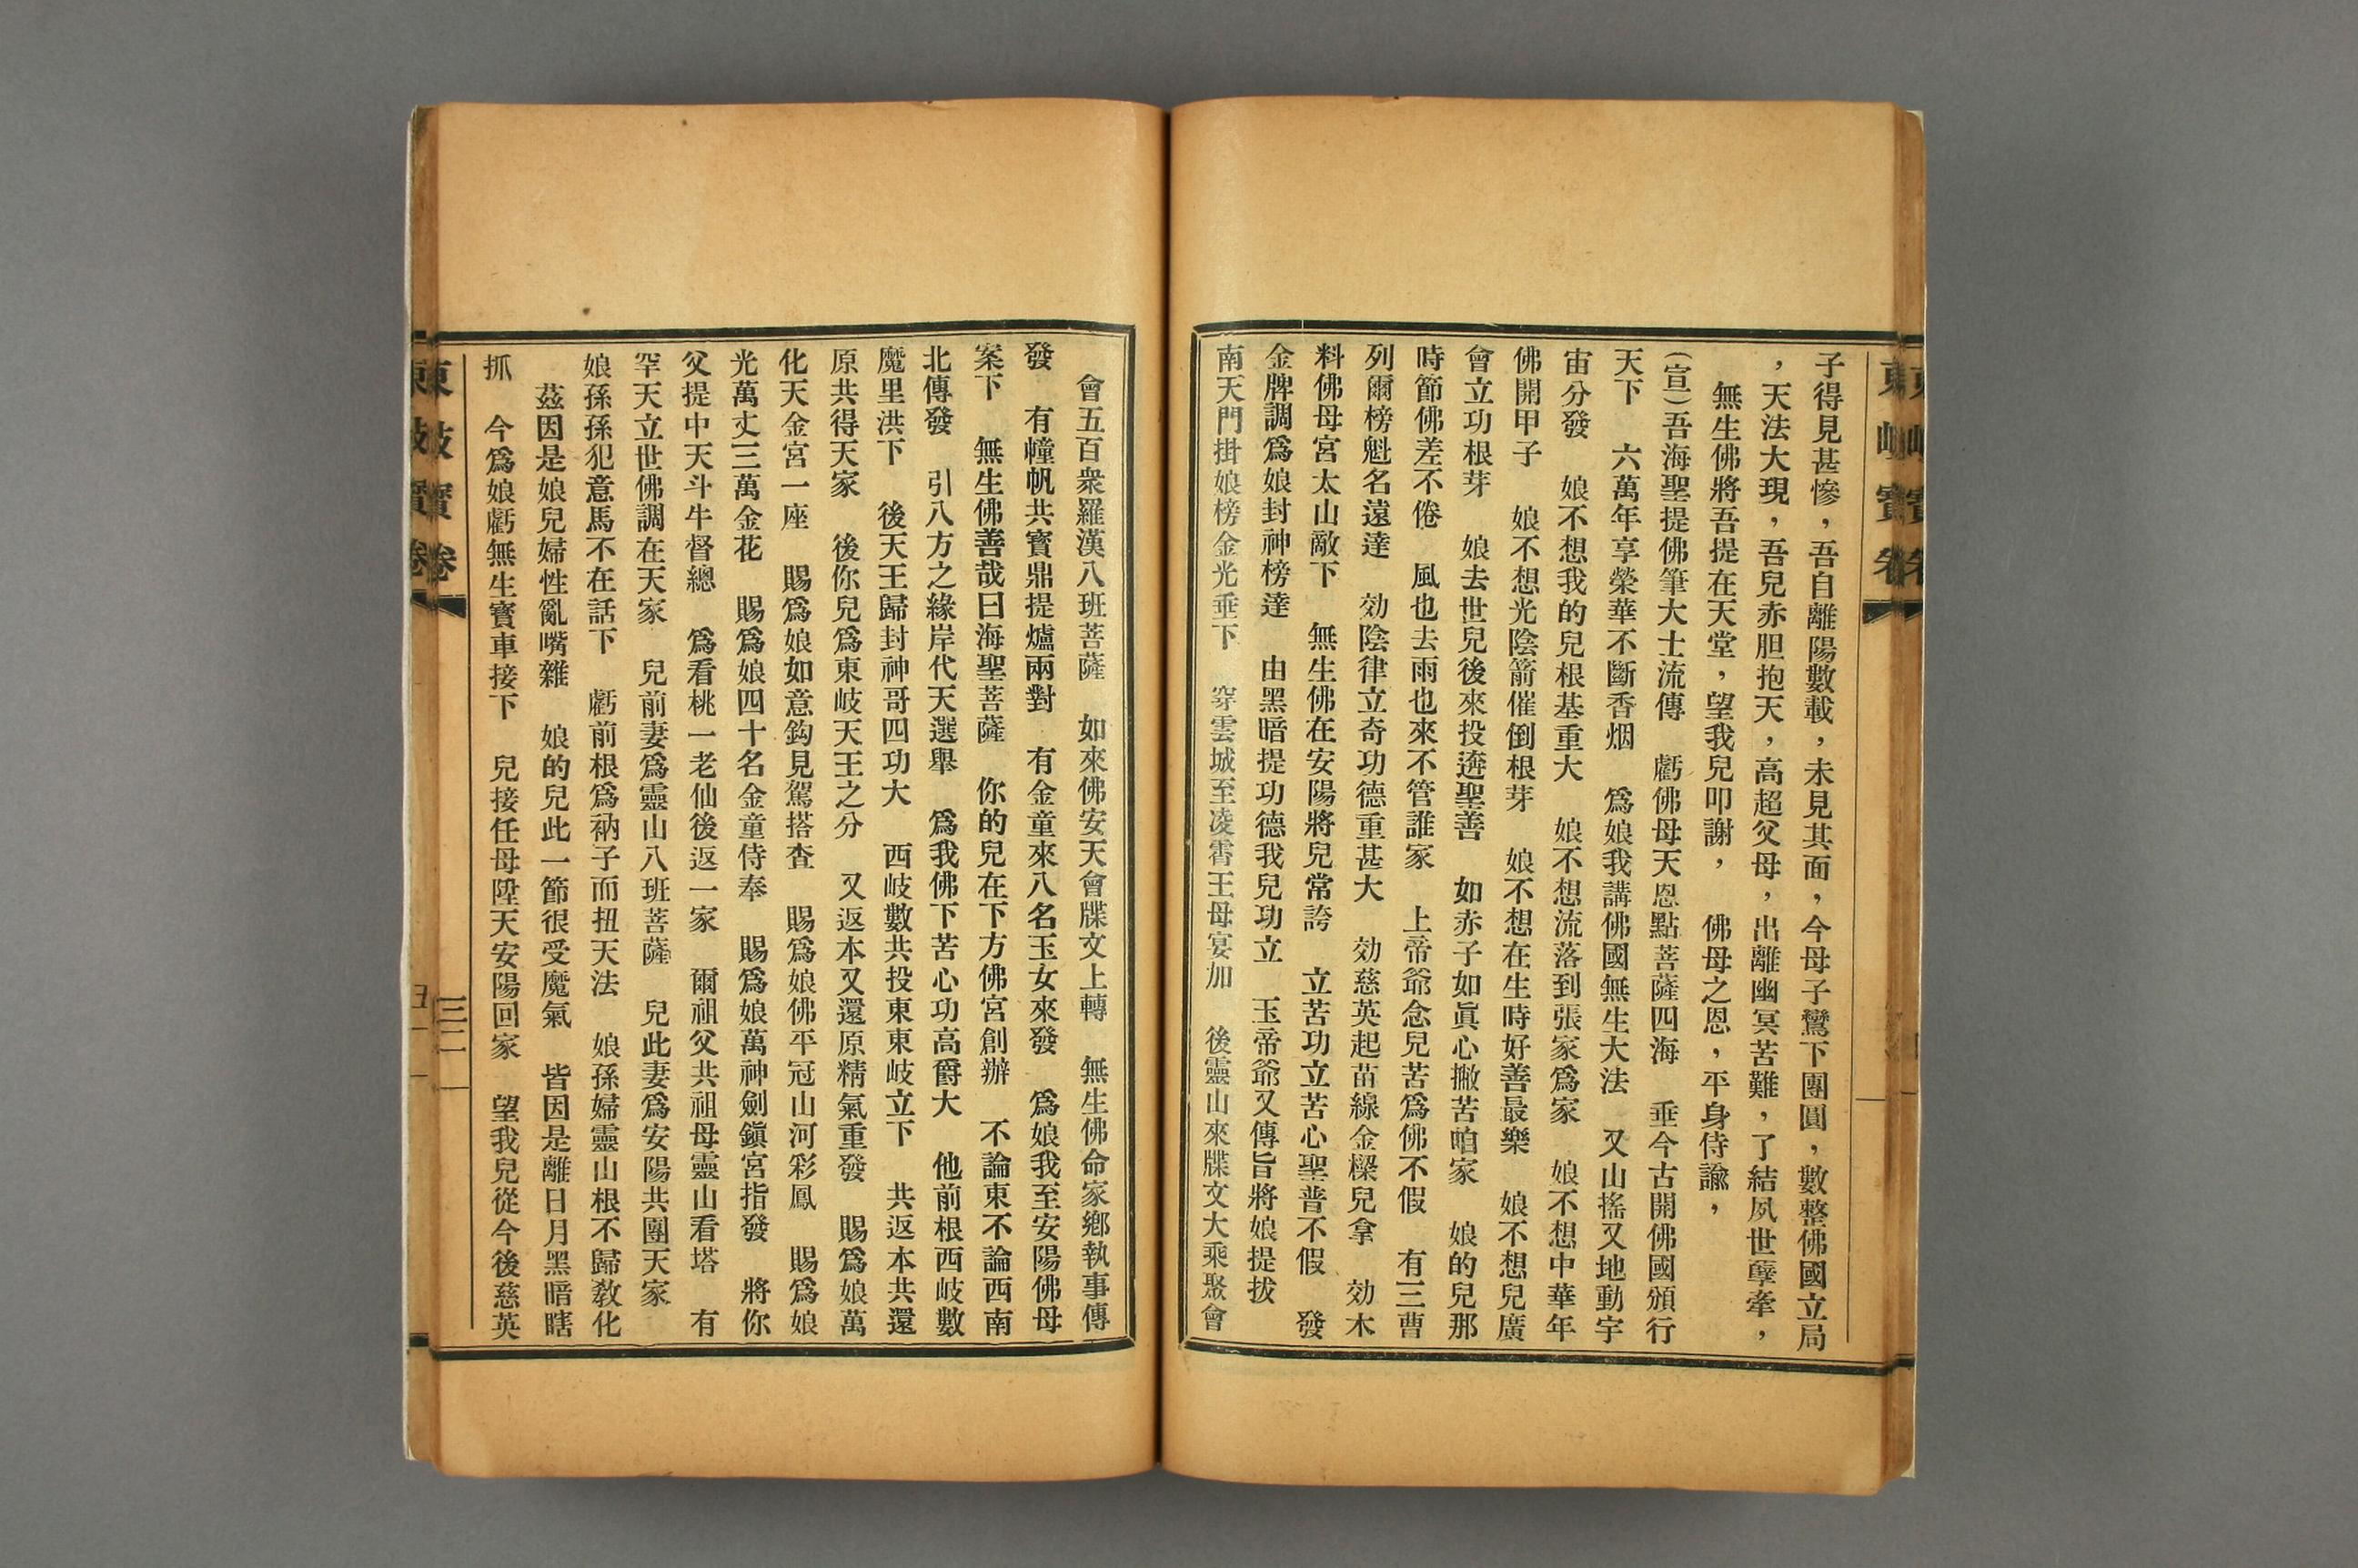 子得見甚慘，吾自離陽數載，未見其面，今母子鸞下團圓，數整佛國立局
，天法大現，吾兒赤胆抱天，高超父母，出離幽冥苦難，了結夙世孽牽，
無生佛將吾提在天堂，望我兒叩謝，　佛母之恩，平身侍諭，
（宣）吾海聖提佛筆大士流傳　虧佛母天恩點菩薩四海　垂今古開佛國頒行
天下　六萬年享榮華不斷香烟　爲娘我講佛國無生大法　又山搖又地動宇
宙分發　娘不想我的兒根基重大　娘不想流落到張家爲家　娘不想中華年
佛開甲子　娘不想光陰箭催倒根芽　娘不想在生時好善最樂　娘不想兒廣
會立功根芽　娘去世兒後來投進聖善　如赤子如眞心撇苦咱家　娘的兒那
時節佛差不倦　風也去雨也來不管誰家　上帝爺念兒苦爲佛不假　有三曹
列爾榜魁名遠達　効陰律立奇功德重甚大　効慈英起苗線金樑兒拿　効木
料佛母宮太山敵下　無生佛在安陽將兒常誇　立苦功立苦心聖普不假　發
金牌調爲娘封神榜達　由黑暗提功德我兒功立　玉帝爺又傳旨將娘提拔
南天門掛娘榜金光垂下　穿雲城至凌霄王母宴加　後靈山來牒文大乘聚會
東岐寶卷
會五百衆羅漢八班菩薩　如來佛安天會牒文上轉　無生佛命家鄉執事傳
發　有幢帆共寳鼎提爐兩對　有金童來八名玉女來發　爲娘我至安陽佛母
案下　無生佛善哉曰海聖菩薩　你的兒在下方佛宮創辦　不論東不論西南
北傳發　引八方之緣岸代天選舉　爲我佛下苦心功高爵大　他前根西岐數
魔里洪下　後天王歸封神哥四功大　西岐數共投東東岐立下　共返本共還
原共得天家　後你兒爲東岐天王之分　又返本又還原精氣重發　賜爲娘萬
化天金宮一座　賜爲娘如意鈎見駕搭査　賜爲娘佛平冠山河彩鳳　賜爲娘
光萬丈三萬金花　賜爲娘四十名金童侍奉　賜爲娘萬神劍鎭宮指發　將你
父提中天斗牛督總　爲看桃一老仙後返一家　爾祖父共祖母靈山看塔　有
罕天立世佛調在天家　兒前妻爲靈山八班菩薩　兒此妻爲安陽共團天家
娘孫孫犯意馬不在話下　虧前根爲衲子而扭天法　娘孫婦靈山根不歸教化
茲因是娘兒婦性亂嘴雜　娘的兒此一節很受魔氣　皆因是離日月黑暗瞎
抓　今爲娘虧無生寳車接下　兒接任母陞天安陽回家　望我兒從今後慈英
東岐寶卷
三二